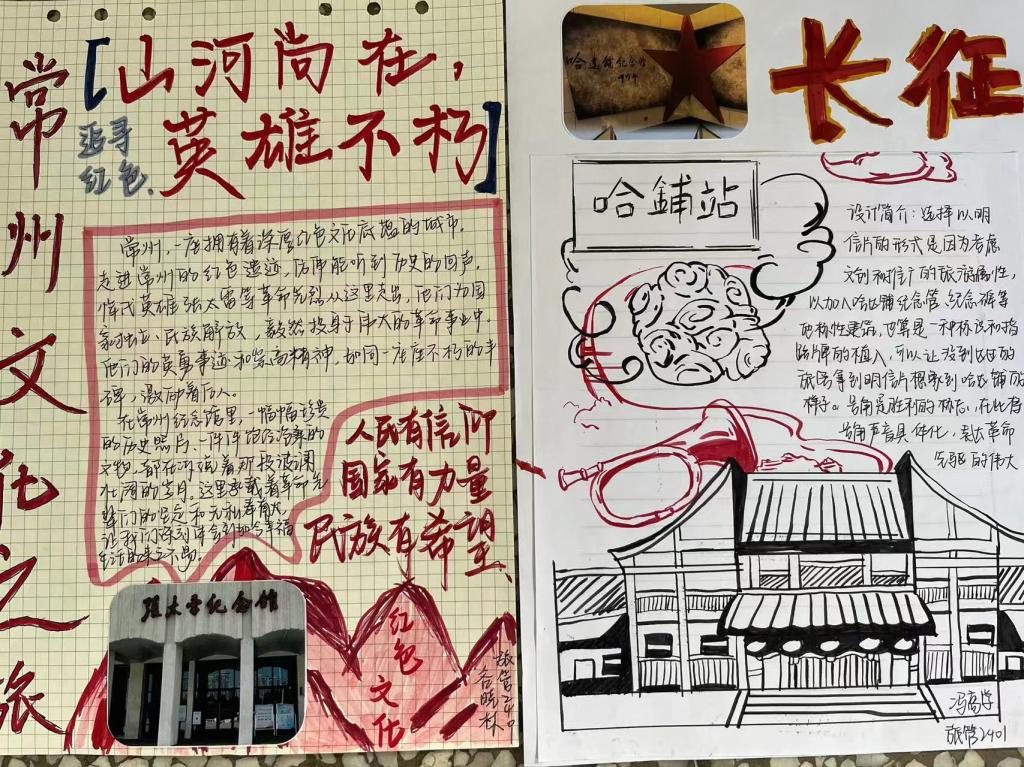 常州文化之旅
[山河尚在，
英雄不朽]
追寻
红色.
常州，一座拥有着深厚红色文历底蕴的城市。
走进常州的红色遗迹，仿佛能听到历史的回声。
张太雷等革命先烈从这里走出，他们为国
家的独立、民族解放，毅然投身于伟大的革命事业中。
他们的英勇事迹和崇高精神，如同一座座不朽的丰
碑，激励着后人。
在常州纪念馆里，一幅幅珍贵
的历史照片、一件件
文物，都在
壮阔的岁月。这里承载着革命先
辈们的坚定和无私奉献，
让我们深刻体会到如今幸福
生活的来之不易。
人民有信仰
国家有力量
民族有希望、
张太雷纪念馆
红色文化
旅管
哈达铺纪念馆
长征
哈鋪站
设计简介：选择以明
信片的形式是因为考虑
文创和推广的旅游属性，
以加入哈达铺纪念馆、纪念碑等
地标性建筑，也算是一种标识和指
路牌的植入，可以让收到此的
旅客拿到明信片想象到哈达铺的
样子。号角是胜利的标志，在此将
号角声音具体化，表达革命
先驱的伟大
冯高学
旅管2401